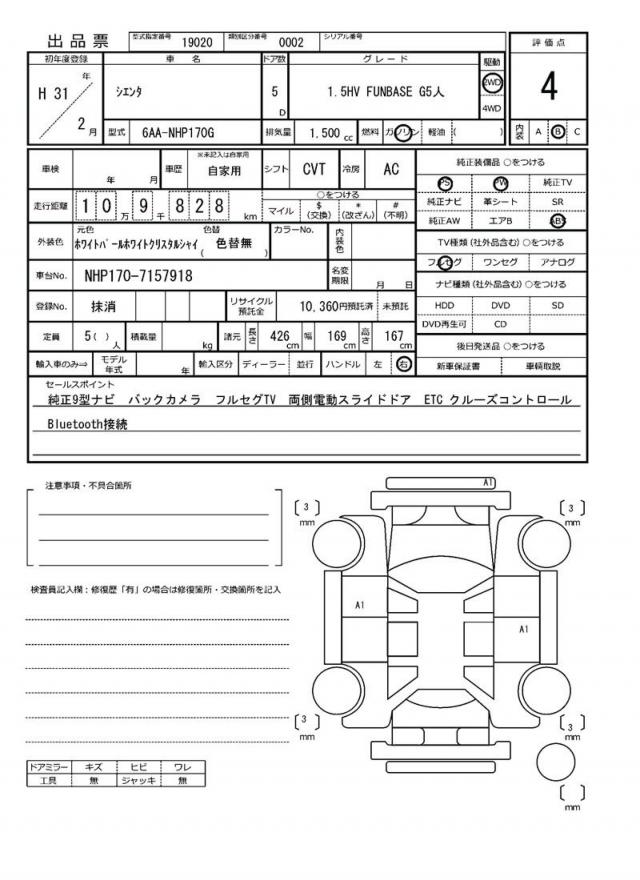 出品票 型式指定番号 19020 類別区分番号 0002 シリアル番号
評価点
4
内装 A B C
初年度登録 車名 ドア数 グレード 駆動
H 31 年 2 月 シエンタ 5 D 1.5HV FUNBASE G5人 2WD 4WD
型式 6AA-NHP170G 排気量 1.500 cc 燃料 ガソリン 軽油 ( )
車検 年 月 車歴 ※未記入は自家用 自家用 シフト CVT 冷房 AC
走行距離 10万9千828 km ○をつける
マイル $(交換) *(改ざん) #(不明)
外装色 元色 色替 カラーNo. 内装色
ホワイトパールホワイトクリスタルシャイ ( 色替無 )
車台No. NHP170-7157918 名変期限 月 日
登録No. 抹消 リサイクル預託金 10,360円預託済 未預託
定員 5( )人 積載量 kg 諸元 長さ 426 cm 幅 169 cm 高さ 167 cm
輸入車のみ⇒ モデル年式 年 輸入区分 ディーラー 並行 ハンドル 左 右
純正装備品 ○をつける
PS PW 純正TV
純正ナビ 革シート SR
純正AW エアB ABS
TV種類(社外品含む) ○をつける
フルセグ ワンセグ アナログ
ナビ種類(社外品含む) ○をつける
HDD DVD SD
DVD再生可 CD
後日発送品 ○をつける
新車保証書 車輌取説
セールスポイント
純正9型ナビ バックカメラ フルセグTV 両側電動スライドドア ETC クルーズコントロール
Bluetooth接続
注意事項・不具合箇所
検査員記入欄：修復歴「有」の場合は修復箇所・交換箇所を記入
ドアミラー キズ ヒビ ワレ
工具 無 ジャッキ 無
A1
〔 3 〕 mm
〔 3 〕 mm
A1
A1
〔 3 〕 mm
〔 3 〕 mm
〔 〕 mm